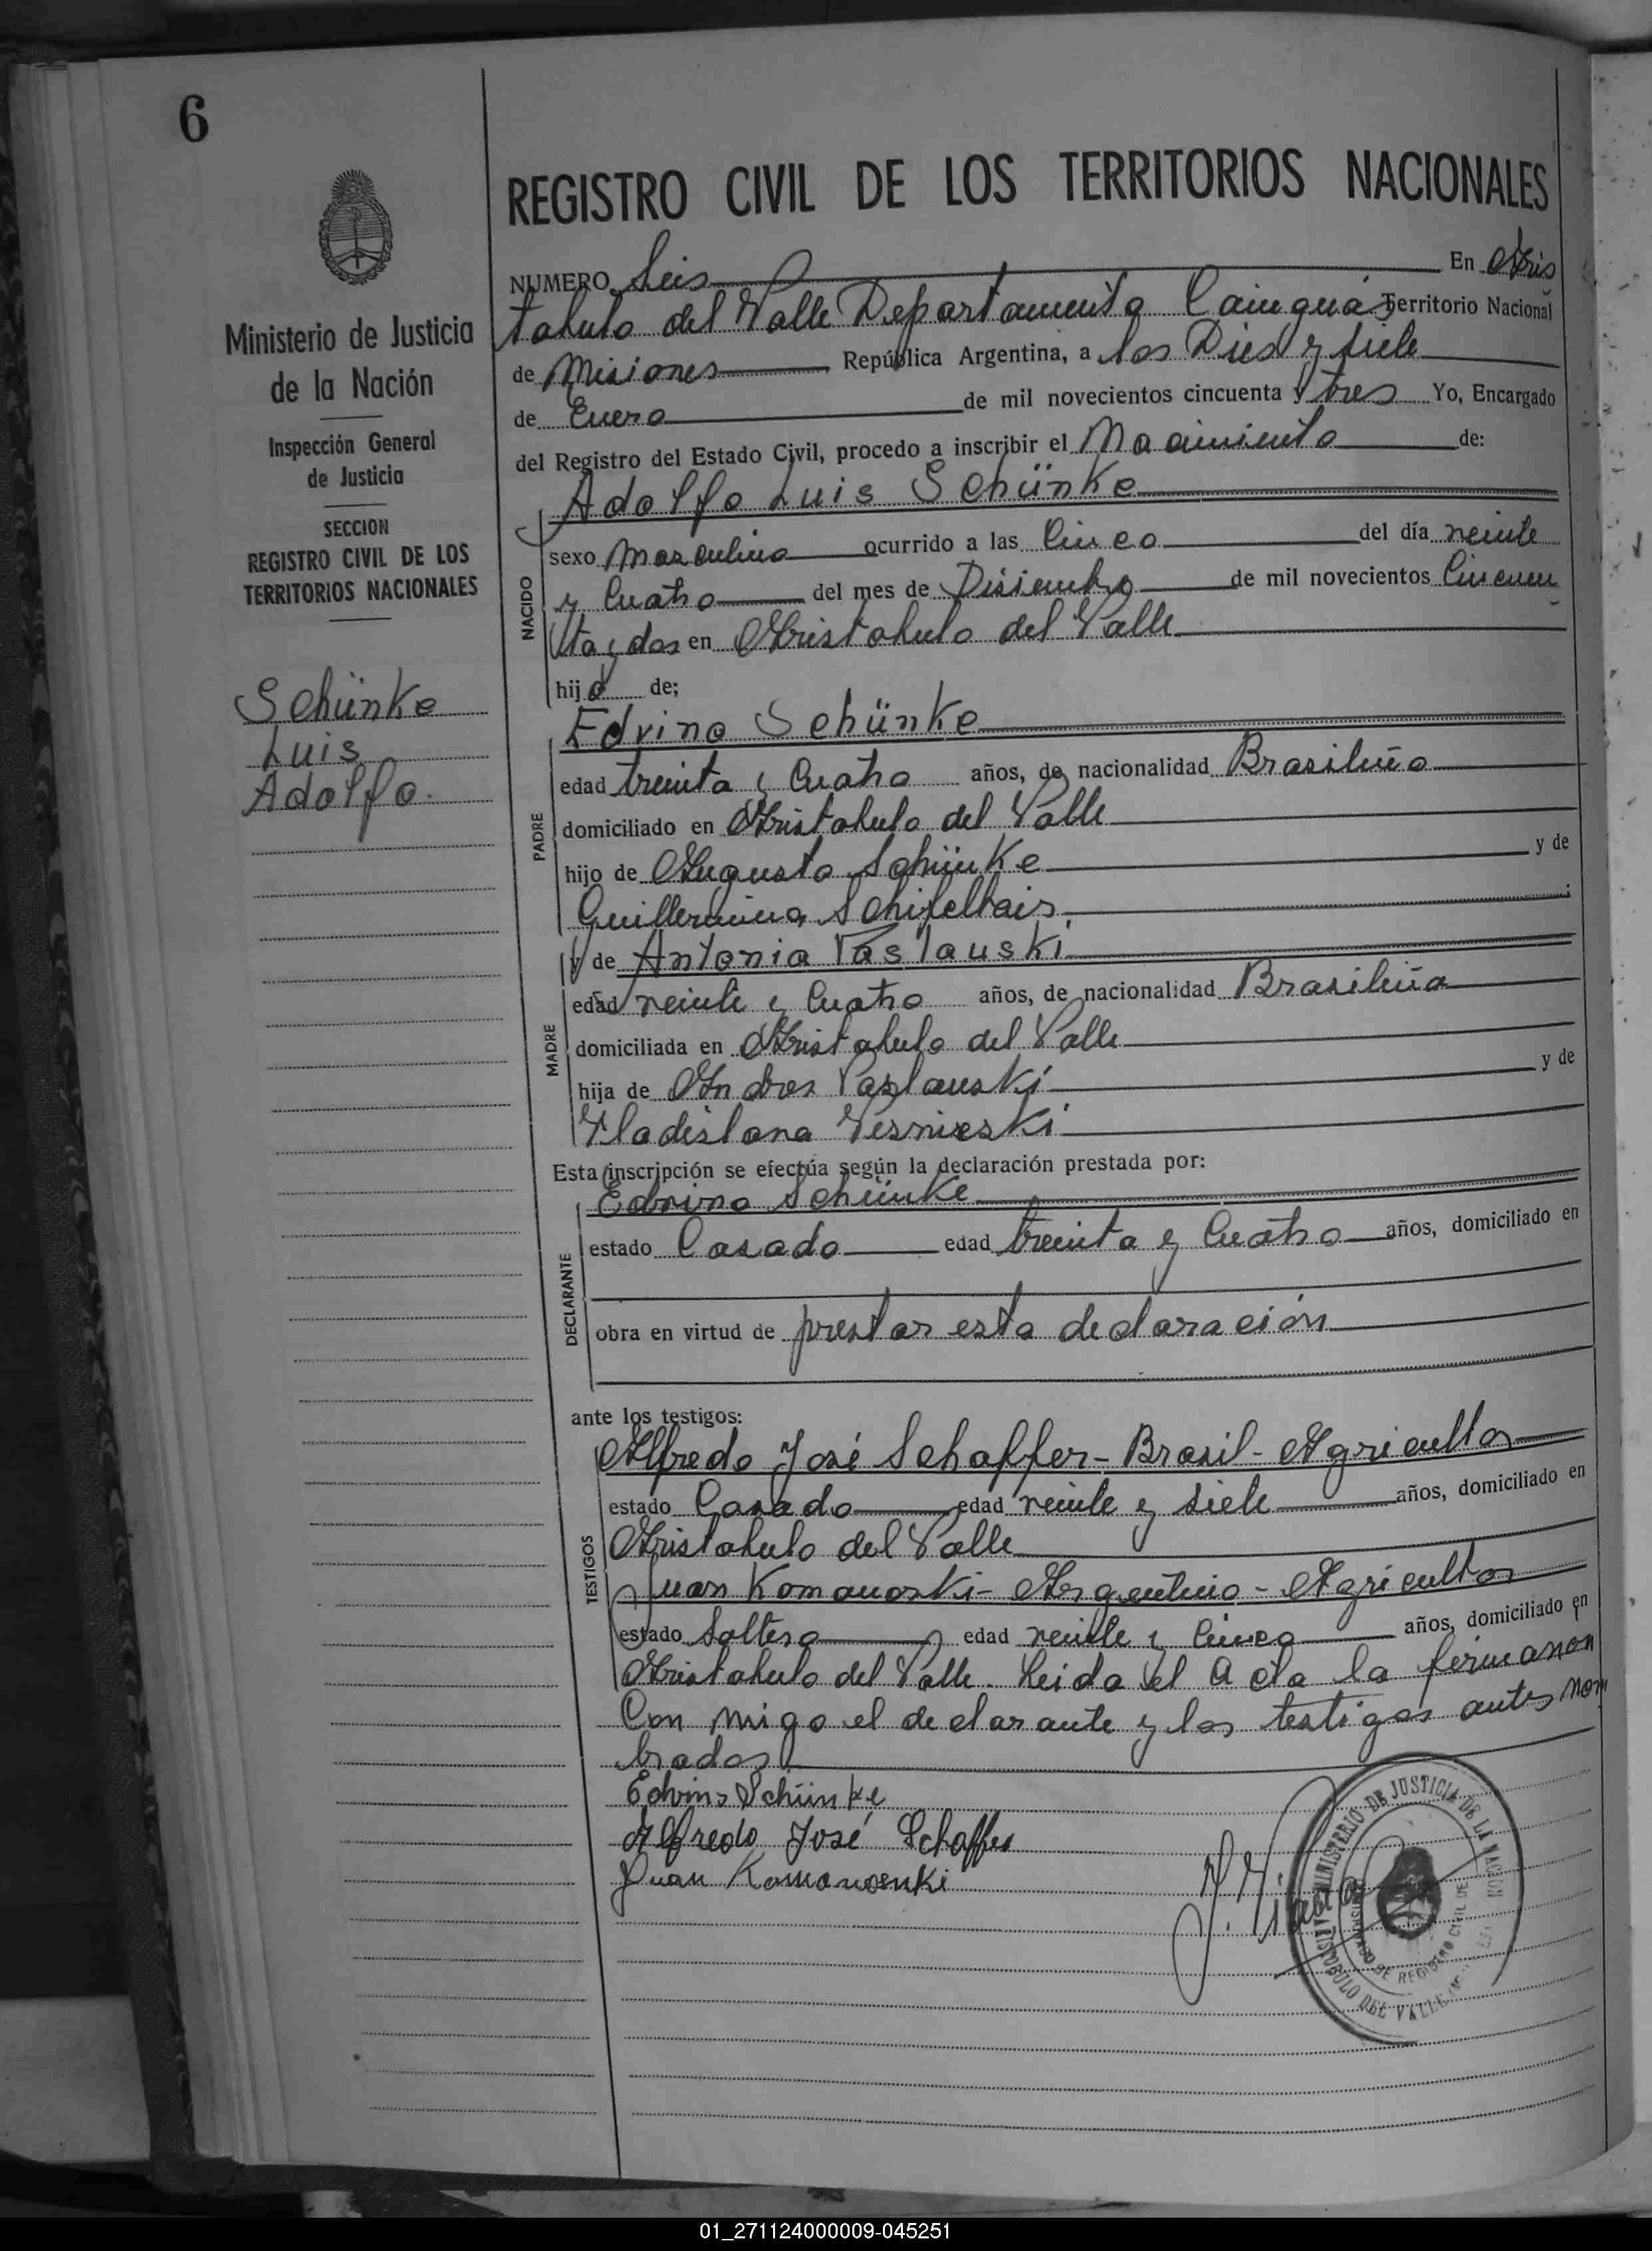 6
REGISTRO CIVIL DE LOS TERRITORIOS NACIONALES
Ministerio de Justicia
de la Nación
Inspección General
de Justicia
SECCION
REGISTRO CIVIL DE LOS
TERRITORIOS NACIONALES
Schünke
Luis
Adolfo.
NUMERO Seis En Aris
tobulo del Valle Departamento Cainguás Territorio Nacional
de Misiones República Argentina, a los Dies y siete
de Enero de mil novecientos cincuenta y tres Yo, Encargado
del Registro del Estado Civil, procedo a inscribir el Nacimiento de:
Adolfo Luis Schünke
NACIDO
sexo Masculino ocurrido a las Cinco del día veinte
y Cuatro del mes de Disiembre de mil novecientos Cincuen
ta y dos en Aristobulo del Valle
hijo de;
Edvino Schünke
PADRE
edad treinta y Cuatro años, de nacionalidad Brasileño
domiciliado en Aristobulo del Valle
hijo de Augusto Schünke y de
Guillermina
y de Antonia Paslauski
MADRE
edad veinte y Cuatro años, de nacionalidad Brasileña
domiciliada en Aristobulo del Valle
hija de Andres Paslauski y de
Vladislava
Esta inscripción se efectúa según la declaración prestada por:
Edvino Schünke
DECLARANTE
estado Casado edad treinta y Cuatro años, domiciliado en
obra en virtud de prestar esta declaración
ante los testigos:
Alfredo José Schaffer - Brasil - Agricultor
TESTIGOS
estado Casado edad veinte y siete años, domiciliado en
Aristobulo del Valle
Juan Komanoski - Argentino - Agricultor
estado Soltero edad veinte y Cinco años, domiciliado en
Aristobulo del Valle. Leida el Acta la firmaron
Con migo el declarante y los testigos antes nom
brados
Edvino Schünke
Alfredo José Schaffer
Juan
MINISTERIO DE JUSTICIA DE LA NACION
REGISTRO CIVIL DE
ARISTOBULO DEL VALLE
01_271124000009-045251